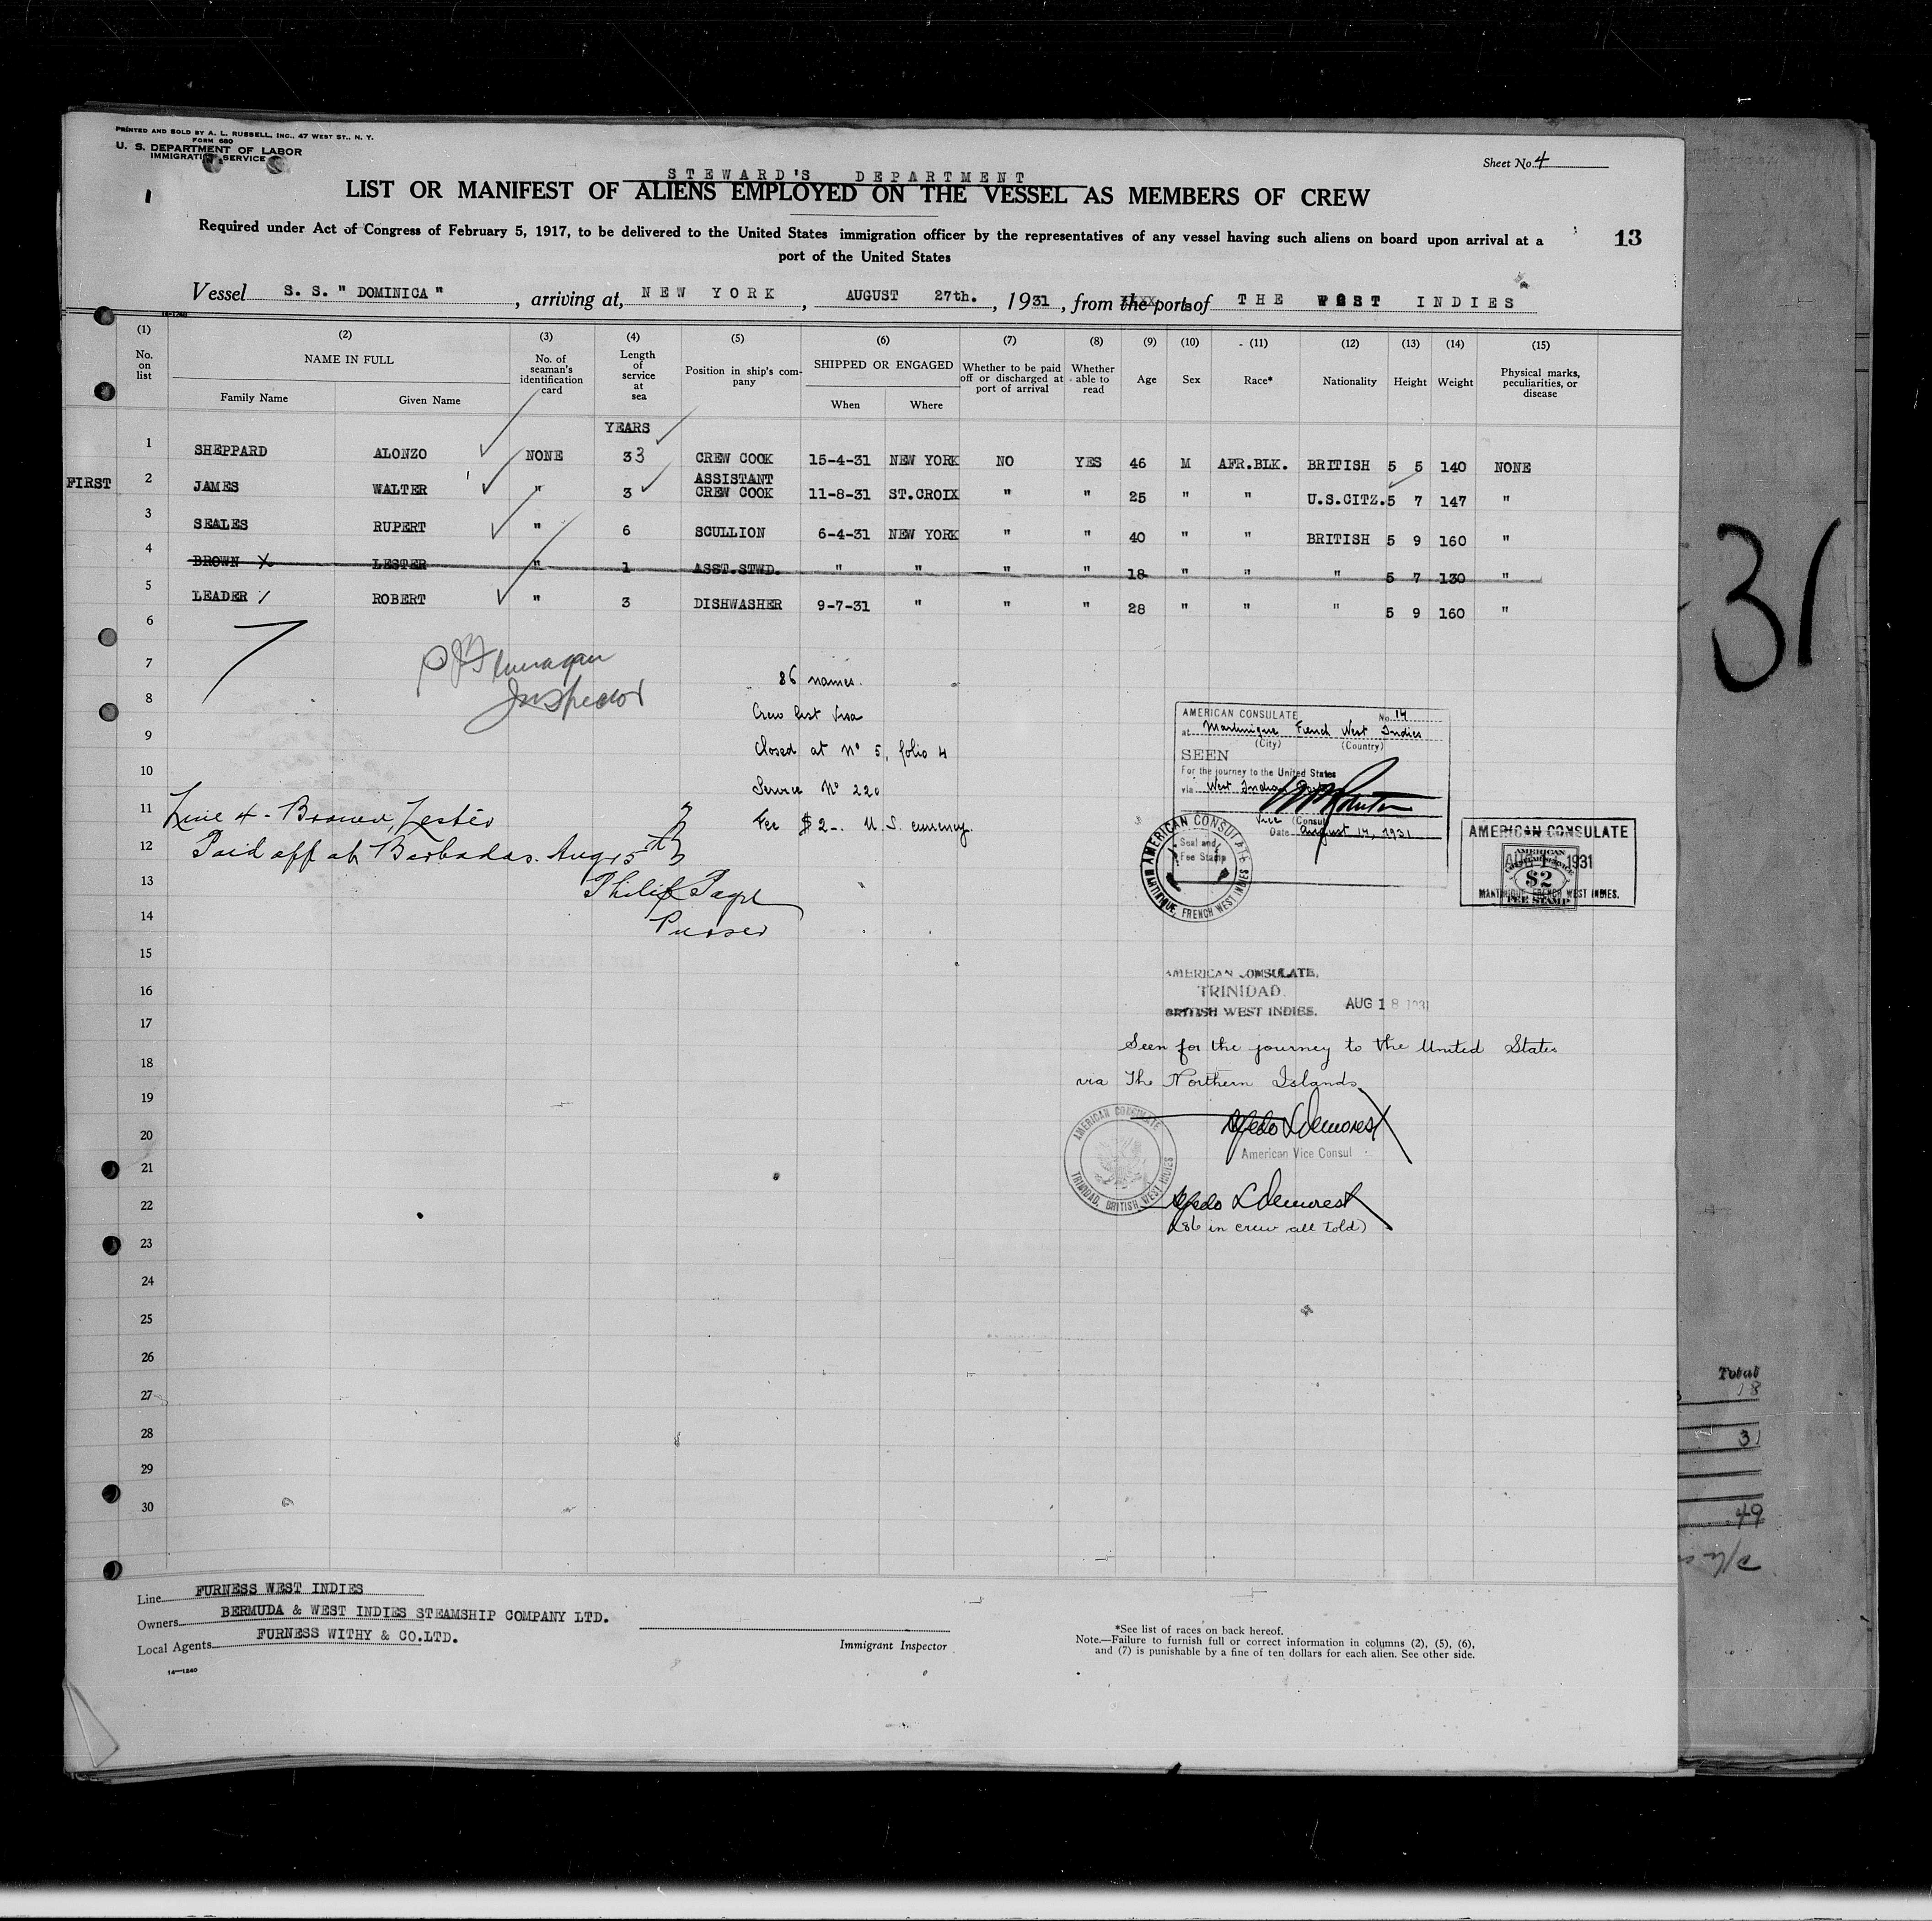 PRINTED AND SOLD BY A. L. RUSSELL, INC., 47 WEST ST., N. Y.
FORM 680
U. S. DEPARTMENT OF LABOR
IMMIGRATION SERVICE
Sheet No. 4
STEWARD'S DEPARTMENT
LIST OR MANIFEST OF ALIENS EMPLOYED ON THE VESSEL AS MEMBERS OF CREW
Required under Act of Congress of February 5, 1917, to be delivered to the United States immigration officer by the representatives of any vessel having such aliens on board upon arrival at a
port of the United States
13
Vessel S. S. " DOMINICA " , arriving at, NEW YORK , AUGUST 27th. , 1931 , from the ports of THE WEST INDIES
(1) (2) (3) (4) (5) (6) (7) (8) (9) (10) (11) (12) (13) (14) (15)
No. on list NAME IN FULL Family Name Given Name No. of seaman's identification card Length of service at sea Position in ship's company SHIPPED OR ENGAGED When Where Whether to be paid off or discharged at port of arrival Whether able to read Age Sex Race* Nationality Height Weight Physical marks, peculiarities, or disease
YEARS
1 SHEPPARD ALONZO NONE 33 CREW COOK 15-4-31 NEW YORK NO YES 46 M AFR.BLK. BRITISH 5 5 140 NONE
FIRST 2 JAMES WALTER " 3 ASSISTANT CREW COOK 11-8-31 ST.CROIX " " 25 " " U.S.CITZ. 5 7 147 "
3 SEALES RUPERT " 6 SCULLION 6-4-31 NEW YORK " " 40 " " BRITISH 5 9 160 "
4 BROWN X LESTER " 1 ASST.STWD. " " " " 18 " " " 5 7 130 "
5 LEADER / ROBERT " 3 DISHWASHER 9-7-31 " " " 28 " " " 5 9 160 "
6
7
8
9
10
11
12
13
14
15
16
17
18
19
20
21
22
23
24
25
26
27
28
29
30
Inspector
86 names.
Crew list visa
Closed at No 5, folio 4
Service No 220
Fee $2-. U.S. currency.
Line 4 - Brown, Lester
Paid off at Barbados. Aug 15th
Philip
Purser
AMERICAN CONSULATE No. 14
at Martinique French West Indies
(City) (Country)
SEEN
For the journey to the United States
via West Indian Ports
Vice (Consul
Date August 14, 1931
Seal and
Fee Stamp
AMERICAN CONSULATE
MARTINIQUE, FRENCH WEST INDIES
AMERICAN CONSULATE
AUG 14 1931
AMERICAN
$2
MARTINIQUE, FRENCH WEST INDIES.
FEE STAMP
AMERICAN CONSULATE,
TRINIDAD,
BRITISH WEST INDIES. AUG 18 1931
Seen for the journey to the United States
via The Northern Islands
Demorest
American Vice Consul
AMERICAN CONSULATE
TRINIDAD, BRITISH WEST INDIES
Demorest
(86 in crew all told)
31
Total
18
31
49
Line FURNESS WEST INDIES
Owners BERMUDA & WEST INDIES STEAMSHIP COMPANY LTD.
Local Agents FURNESS WITHY & CO.LTD.
14—1240
Immigrant Inspector
*See list of races on back hereof.
Note.—Failure to furnish full or correct information in columns (2), (5), (6),
and (7) is punishable by a fine of ten dollars for each alien. See other side.